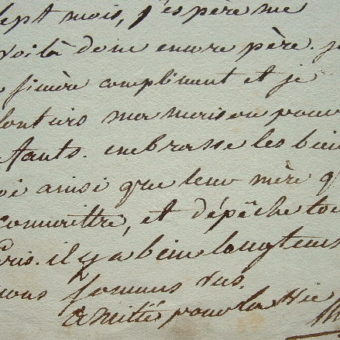 sept mois, j'espère me
voilà donc encore père. je
sincère compliment et je
lontiers ma maison pour
fants. embrasse les bien
toi ainsi que leur mère q
connoître, et dépêche toi
Paris. il y a bien longtems
nous sommes vus.
amitié pour la vie